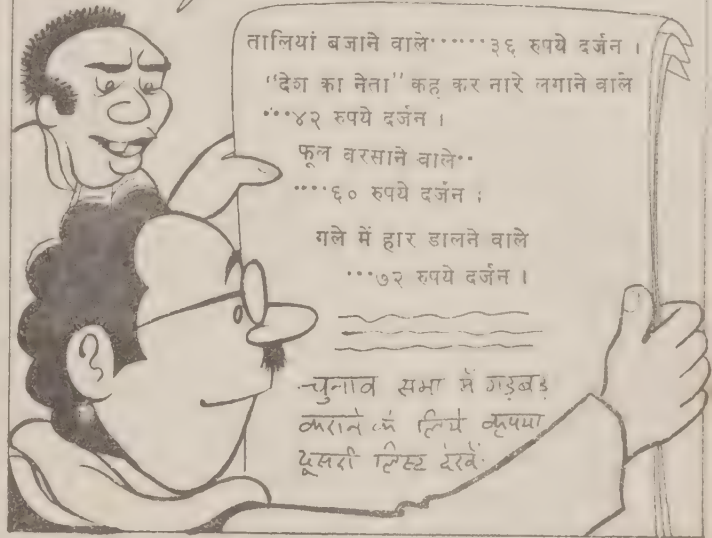 तालियां बजाने वाले······३६ रुपये दर्जन ।
"देश का नेता" कह कर नारे लगाने वाले
···४२ रुपये दर्जन ।
फूल बरसाने वाले··
····६० रुपये दर्जन ;
गले में हार डालने वाले
···७२ रुपये दर्जन ।
चुनाव सभा में गड़बड़
कराने के लिये कृपया
दूसरी लिस्ट देखें.